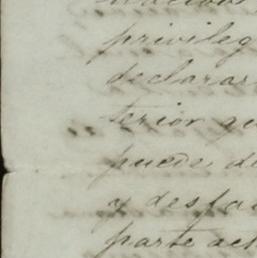 privileg
declarar
terior qu
puede de
y desfa
parte act